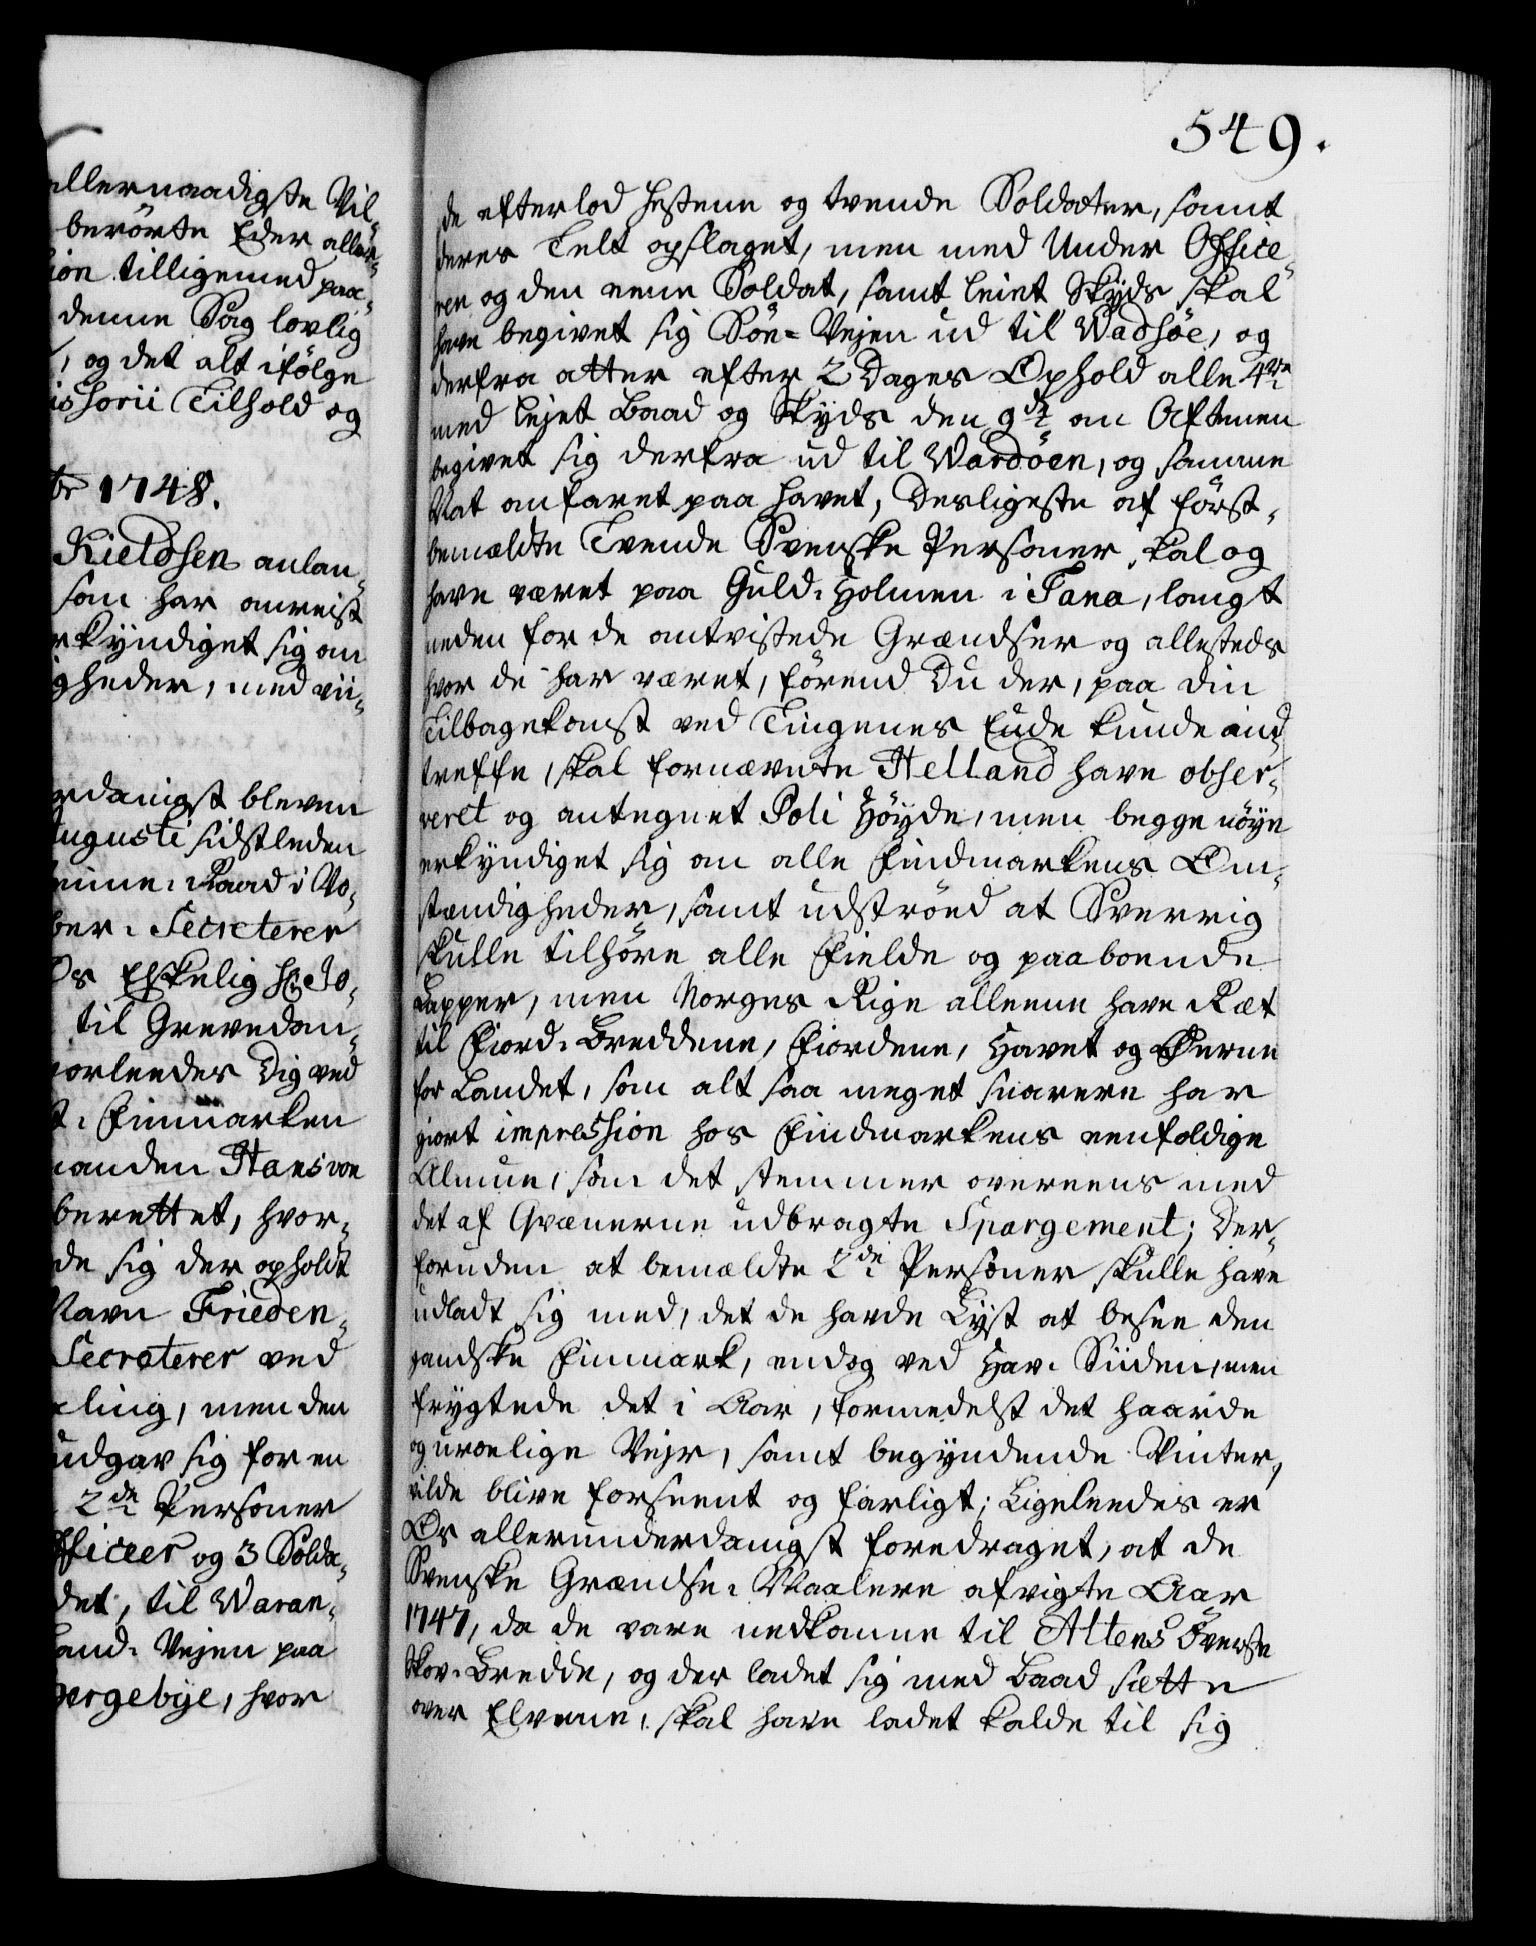 allernaadigste Vil-
berörte Eder aller-
ion tilligemed paa-
denne Sag lovlig
, og det alt ifölge
issorii Tilhold og
br 1748.
Kieldsen anlan-
som har anreist
rkyndiget sig om
gheder, med vii-
rdanigst bleven
Augusti sidstleden
eime-Raad i No-
ber-Secreterer
Os Elskelig Hr. Jo-
til Grevedom-
vorleedes Dig ved
t-Finmarken
manden Hans von
berettet, hvor-
de sig der opholdt
Navn Frieden-
Secreterer ved
ling, men den
udgav sig for en
2de Personer
fficeer og 3 Solda-
det, til Waran-
Land-Vejen paa
bergebye, hvor
549.
de efterlod Hestene og tvende Soldater, samt
deres Telt opslaget, men med Under Office-
ren og den eene Soldat, samt leiet Skyds skal
have begivet sig Söe-Vejen ud til Wadsöe, og
derfra atter efter 2 Dages Ophold alle 4re
med lejet Baad og Skyds den 9de om Aftenen
begivet sig derfra ud til Wardöen, og samme
Nat omfaret paa Havet, Desligeste af först-
bemeldte Tvende Svenske Personer skal og
have været paa Guld-Holmen i Tana, langt
neden for de antvistede Grændser og allesteds
hvor de har været, förend Du der, paa din
Tilbagekomst ved Tingenes Ende kunde ind
treffe, skal fornævnte Helland have obser-
veret og antegnet Poli Höyde, men begge nöye
erkyndiget sig om alle Findmarkens Om-
stændigheder, samt udströed at Sverrig
skulle tilhöre alle Fielde og paaboende
Lapper, men Norges Rige alleene have Ræt
til Fiord-Breddene, Fiordene, Havet og Öerne
for Landet, som alt saa meget snarere har
giort impression hos Findmarkens eenfoldige
Almue, som det stemmer overeens med
det af Qvænerne udbragte Spargement; Der-
foruden at bemeldte 2de Personer skulle have
udladt sig med, det de havde Lyst at besee den
gandske Finmark, endog ved Hav-Siiden, men
frygtede det i Aar, formedelst det haarde
og uroelige Vejr, samt begyndende Vinter,
vilde blive forseent og farligt; Ligeleedes er
Os allerunderdanigst foredraget, at de
Svenske Grændse-Maalere afvigte Aar
1747, da de vare nedkomne til Altens Överste
Skov-Bredde, og der ladet sig med Baad sætte
over Elvene, skal have ladet kalde til sig